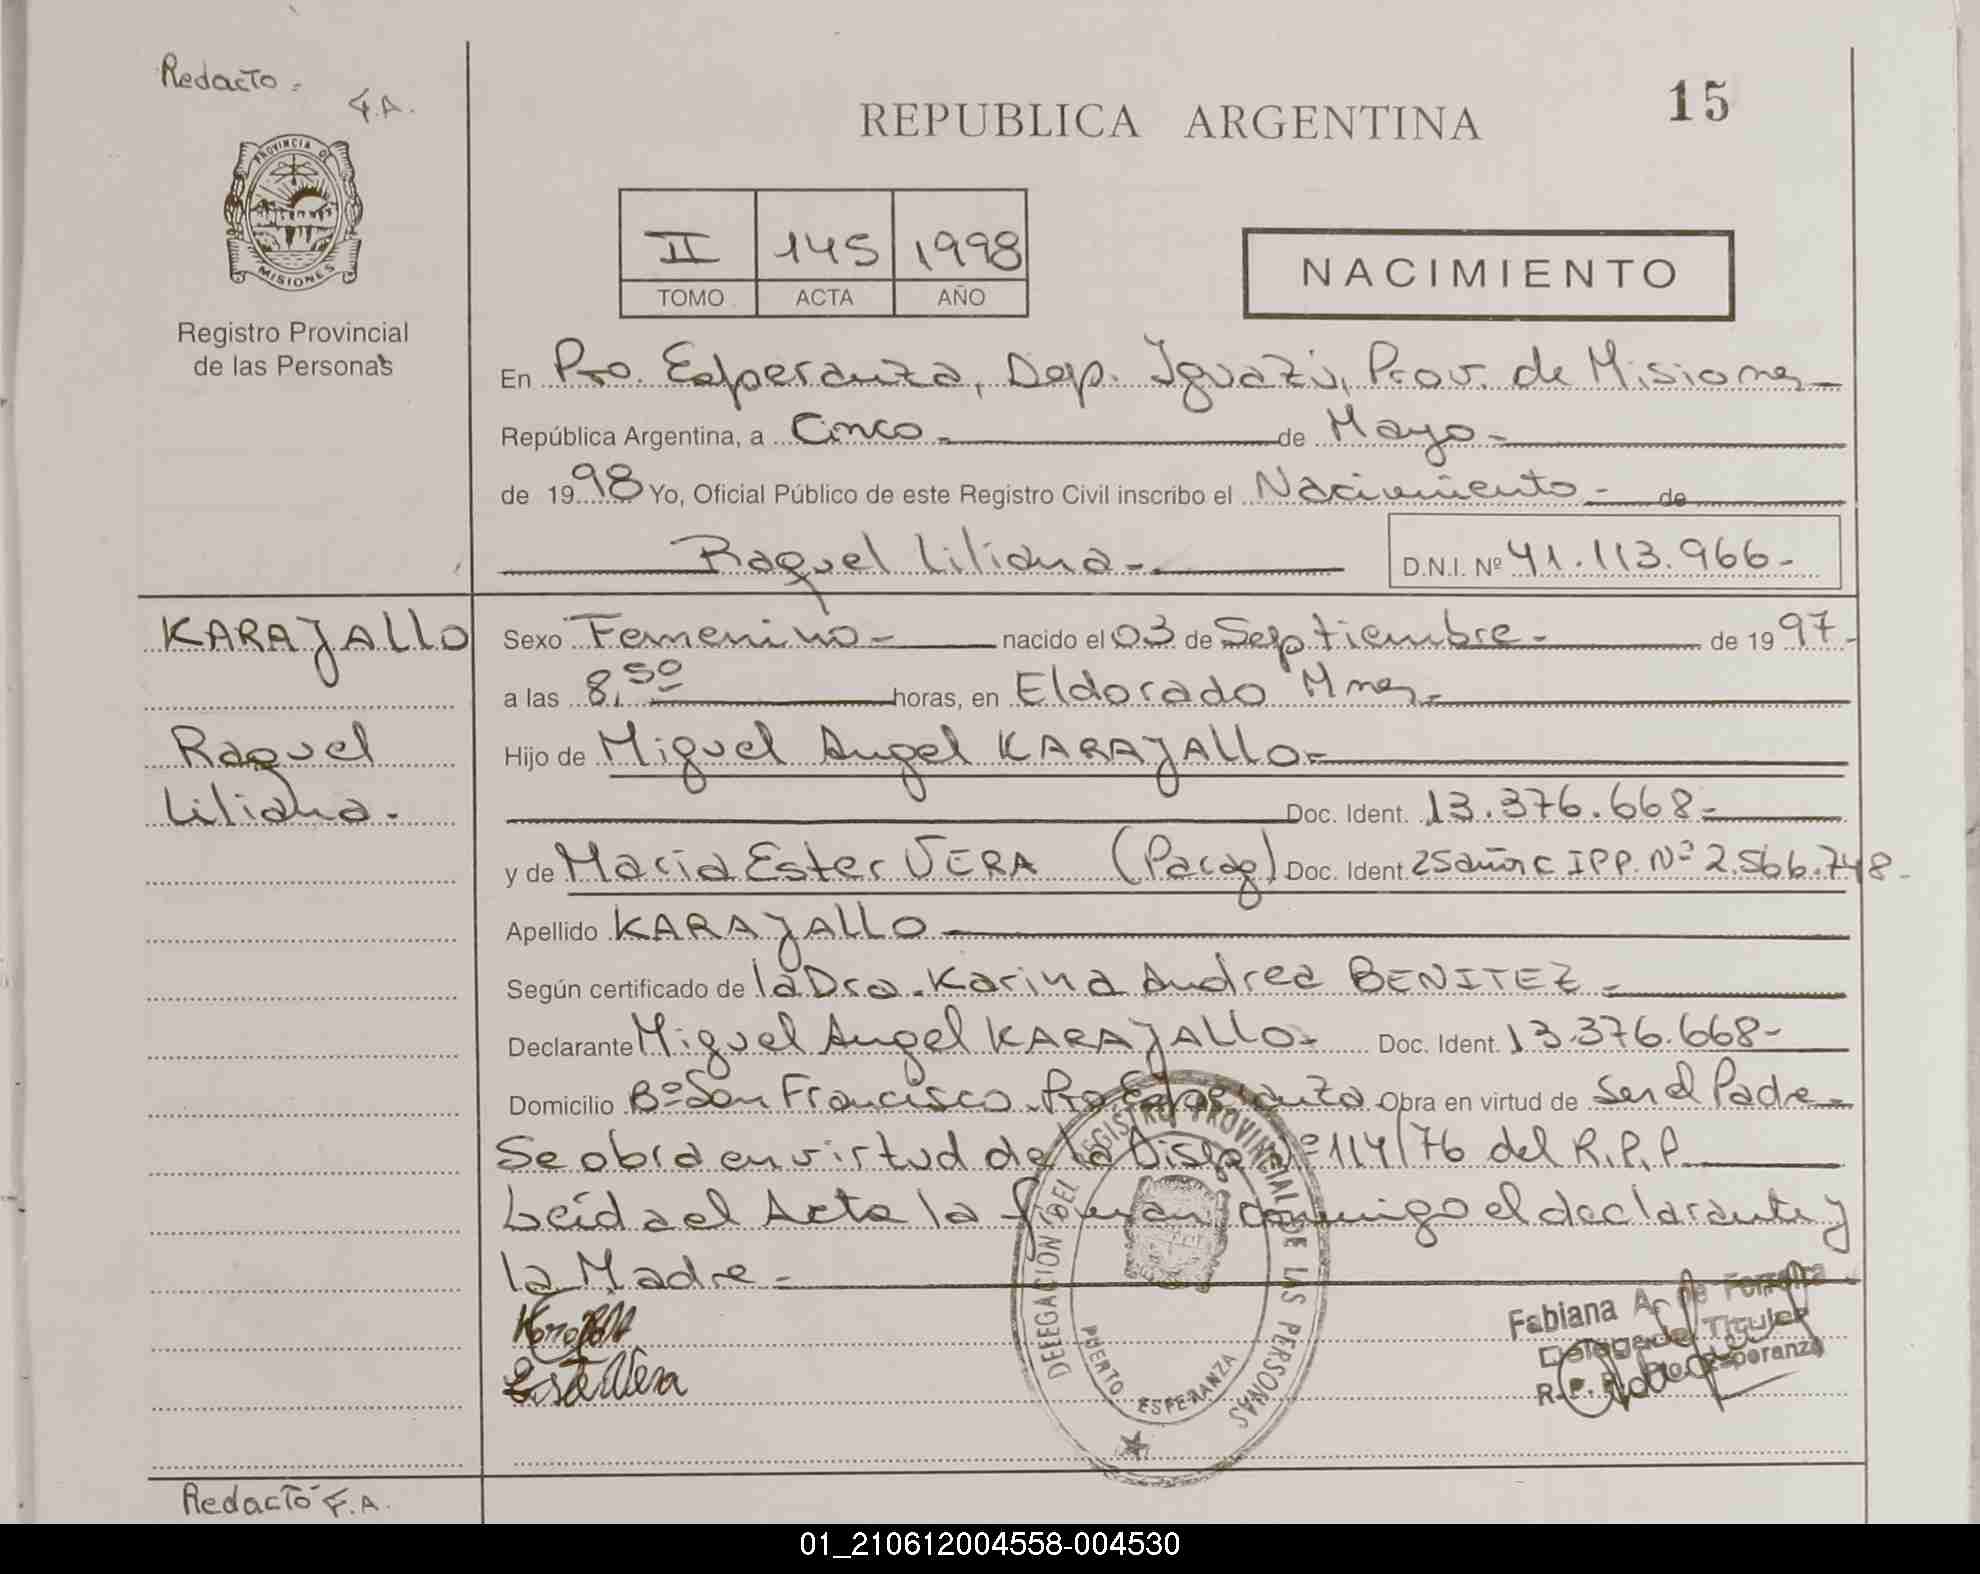 Redacto -
F.A.
PROVINCIA DE
MISIONES
Registro Provincial
de las Personas
REPUBLICA ARGENTINA
15
II 145 1998
TOMO ACTA AÑO
NACIMIENTO
En Pto. Esperanza, Dep. Iguazú, Prov. de Misiones
República Argentina, a Cinco - de Mayo -
de 1998 Yo, Oficial Público de este Registro Civil inscribo el Nacimiento - de
Raquel Liliana -
D.N.I. Nº 41.113.966-
KARAJALLO
Raquel
Liliana -
Sexo Femenino - nacido el 03 de Septiembre - de 1997-
a las 8,50 horas, en Eldorado Mnes -
Hijo de Miguel Angel KARAJALLO -
Doc. Ident. 13.376.668-
y de Maria Ester VERA (Parag) Doc. Ident 25 años C IPP. Nº 2.566.748-
Apellido KARAJALLO -
Según certificado de la Dra. Karina Andrea BENITEZ -
Declarante Miguel Angel KARAJALLO - Doc. Ident. 13.376.668-
Domicilio Bº San Francisco Pto Esperanza Obra en virtud de Ser el Padre -
Se obra en virtud de la Disp Nº 114/76 del R.P.P.
Leida el Acta la firman conmigo el declarante y
la Madre -
Ester Vera
DELEGACION DEL REGISTRO PROVINCIAL DE LAS PERSONAS
PUERTO ESPERANZA
Fabiana A. de Ferreira
Delegada Titular
R.P.P. Pto. Esperanza
Redactó F.A.
01_210612004558-004530